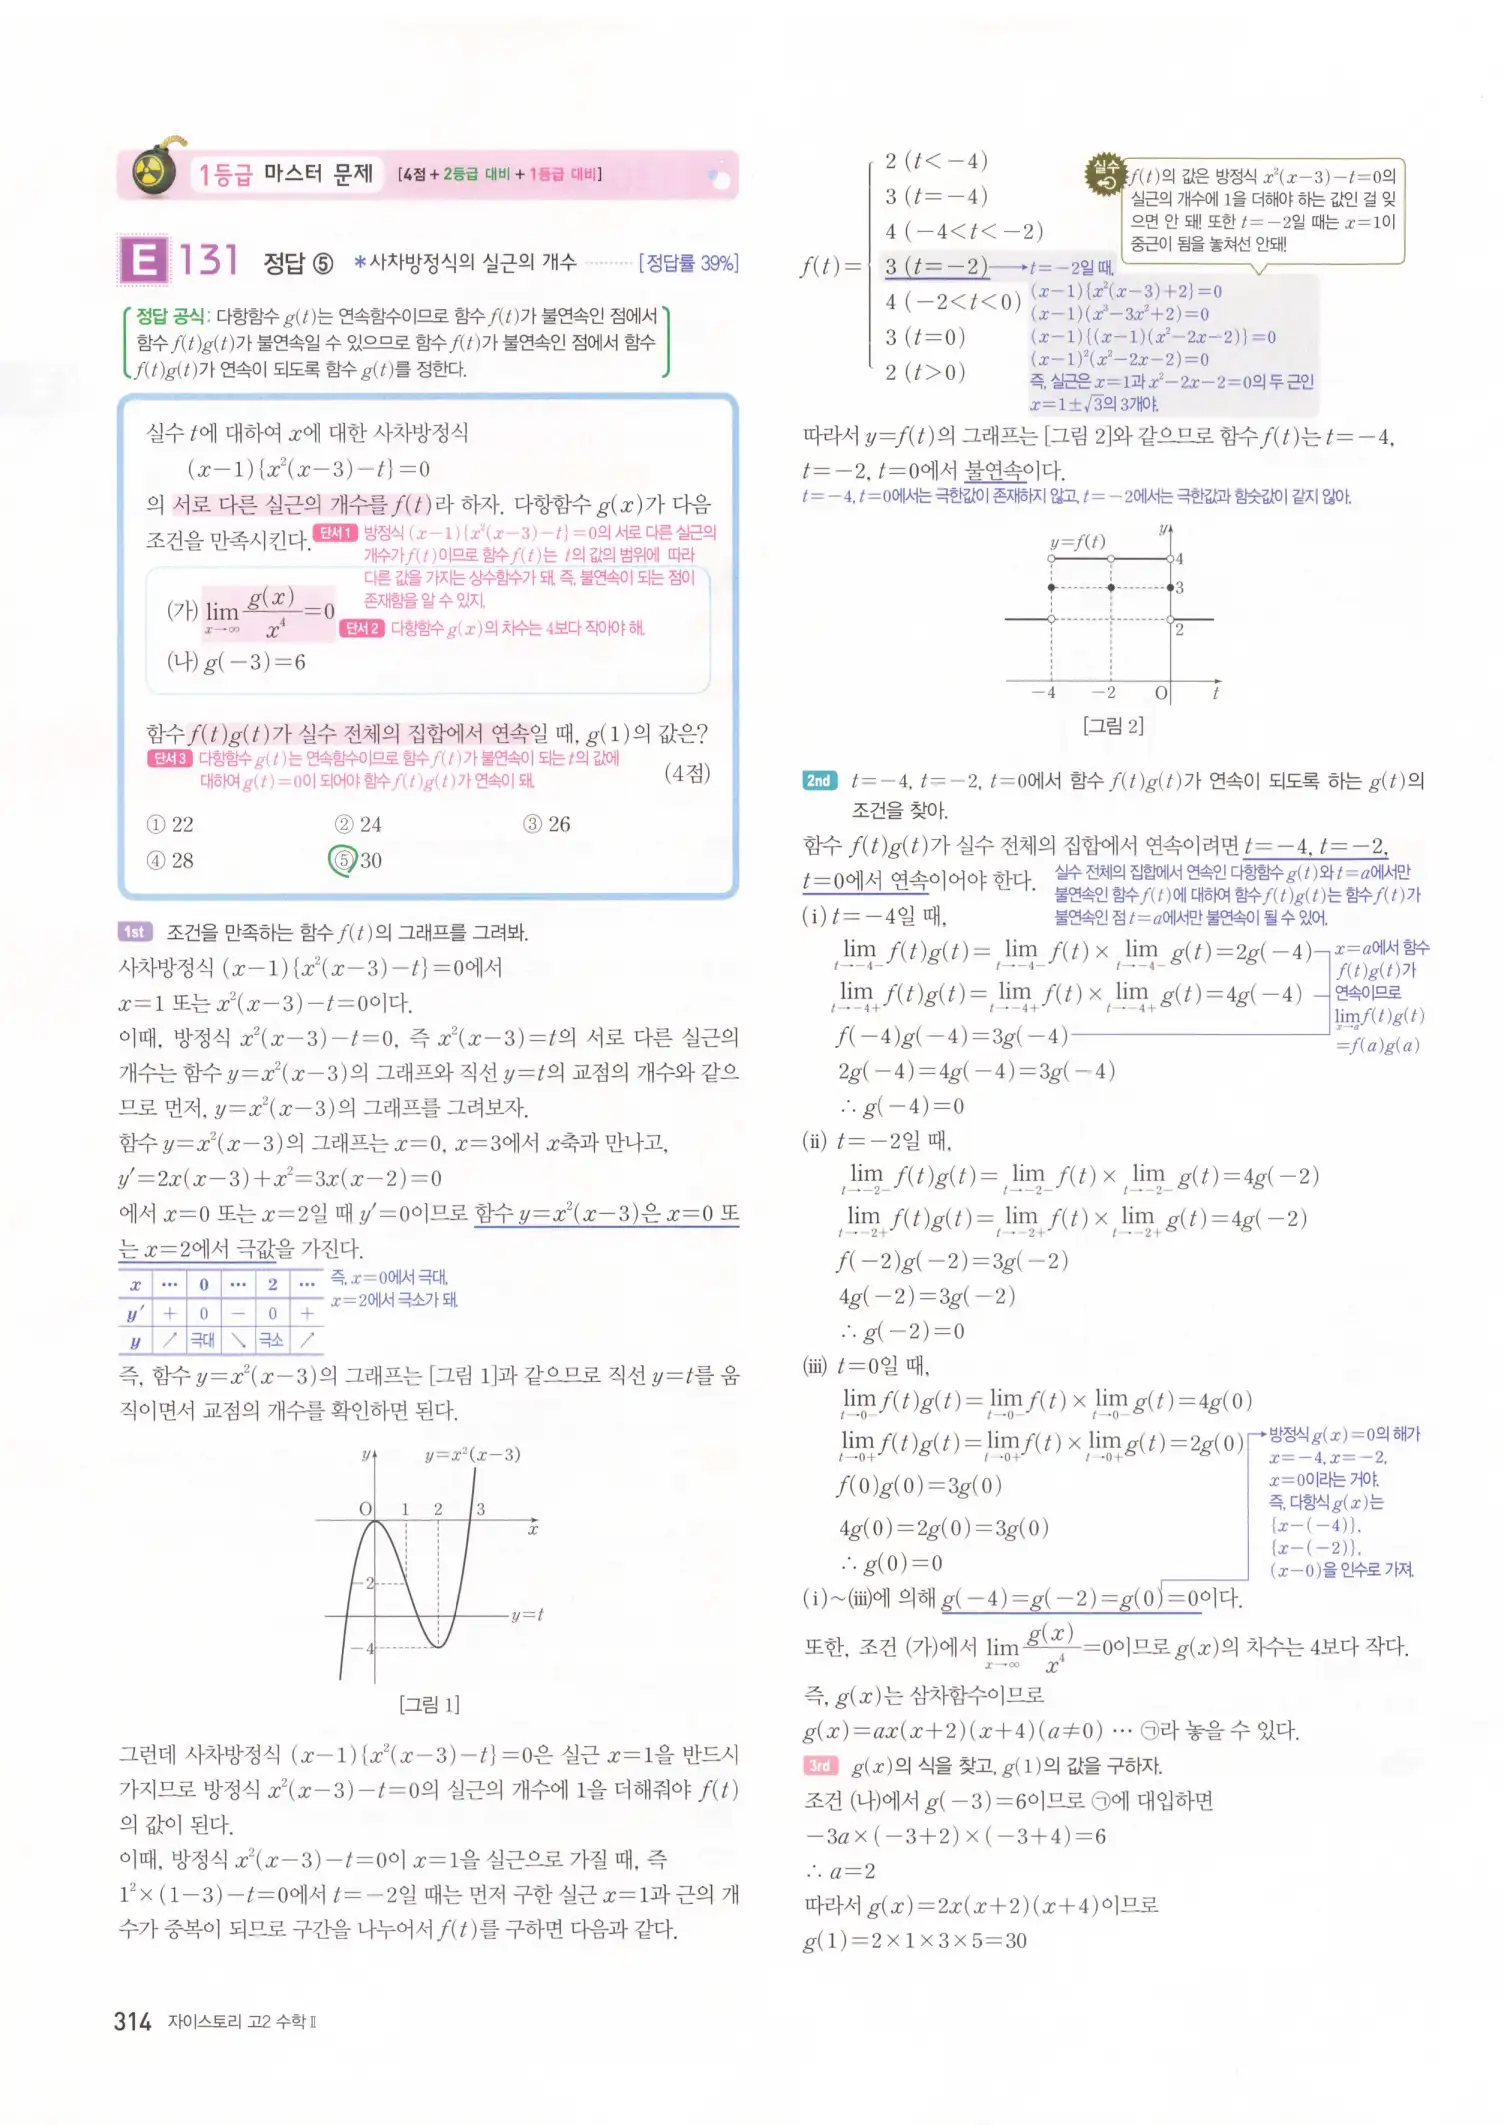 1등급 마스터 문제 [4점 + 2등급 대비 + 1등급 대비]
E 131 정답 ⑤ *사차방정식의 실근의 개수 ········ [정답률 39%]
정답 공식: 다항함수 g(t)는 연속함수이므로 함수 f(t)가 불연속인 점에서
함수 f(t)g(t)가 불연속일 수 있으므로 함수 f(t)가 불연속인 점에서 함수
f(t)g(t)가 연속이 되도록 함수 g(t)를 정한다.
실수 t에 대하여 x에 대한 사차방정식
(x-1){x²(x-3)-t}=0
의 서로 다른 실근의 개수를 f(t)라 하자. 다항함수 g(x)가 다음
조건을 만족시킨다. 단서1 방정식 (x-1){x²(x-3)-t}=0의 서로 다른 실근의
개수가 f(t)이므로 함수 f(t)는 t의 값의 범위에 따라
다른 값을 가지는 상수함수가 돼. 즉, 불연속이 되는 점이
존재함을 알 수 있지.
(가) lim x→∞ g(x)/x⁴=0
단서2 다항함수 g(x)의 차수는 4보다 작아야 해.
(나) g(-3)=6
함수 f(t)g(t)가 실수 전체의 집합에서 연속일 때, g(1)의 값은?
단서3 다항함수 g(t)는 연속함수이므로 함수 f(t)가 불연속이 되는 t의 값에
대하여 g(t)=0이 되어야 함수 f(t)g(t)가 연속이 돼.
(4점)
① 22 ② 24 ③ 26
④ 28 ⑤ 30
1st 조건을 만족하는 함수 f(t)의 그래프를 그려봐.
사차방정식 (x-1){x²(x-3)-t}=0에서
x=1 또는 x²(x-3)-t=0이다.
이때, 방정식 x²(x-3)-t=0, 즉 x²(x-3)=t의 서로 다른 실근의
개수는 함수 y=x²(x-3)의 그래프와 직선 y=t의 교점의 개수와 같으
므로 먼저, y=x²(x-3)의 그래프를 그려보자.
함수 y=x²(x-3)의 그래프는 x=0, x=3에서 x축과 만나고,
y′=2x(x-3)+x²=3x(x-2)=0
에서 x=0 또는 x=2일 때 y′=0이므로 함수 y=x²(x-3)은 x=0 또
는 x=2에서 극값을 가진다.
x ··· 0 ··· 2 ···
y′ + 0 - 0 +
y ↗ 극대 ↘ 극소 ↗
즉, x=0에서 극대,
x=2에서 극소가 돼.
즉, 함수 y=x²(x-3)의 그래프는 [그림 1]과 같으므로 직선 y=t를 움
직이면서 교점의 개수를 확인하면 된다.
y y=x²(x-3)
O 1 2 3 x
-2
y=t
-4
[그림 1]
그런데 사차방정식 (x-1){x²(x-3)-t}=0은 실근 x=1을 반드시
가지므로 방정식 x²(x-3)-t=0의 실근의 개수에 1을 더해줘야 f(t)
의 값이 된다.
이때, 방정식 x²(x-3)-t=0이 x=1을 실근으로 가질 때, 즉
1²×(1-3)-t=0에서 t=-2일 때는 먼저 구한 실근 x=1과 근의 개
수가 중복이 되므로 구간을 나누어서 f(t)를 구하면 다음과 같다.
314 자이스토리 고2 수학Ⅱ
f(t)=
2 (t<-4)
3 (t=-4)
4 (-4<t<-2)
3 (t=-2)
4 (-2<t<0)
3 (t=0)
2 (t>0)
실수
f(t)의 값은 방정식 x²(x-3)-t=0의
실근의 개수에 1을 더해야 하는 값인 걸 잊
으면 안 돼! 또한 t=-2일 때는 x=1이
중근이 됨을 놓쳐선 안돼!
t=-2일 때,
(x-1){x²(x-3)+2}=0
(x-1)(x³-3x²+2)=0
(x-1){(x-1)(x²-2x-2)}=0
(x-1)²(x²-2x-2)=0
즉, 실근은 x=1과 x²-2x-2=0의 두 근인
x=1±√3의 3개야.
따라서 y=f(t)의 그래프는 [그림 2]와 같으므로 함수 f(t)는 t=-4,
t=-2, t=0에서 불연속이다.
t=-4, t=0에서는 극한값이 존재하지 않고, t=-2에서는 극한값과 함숫값이 같지 않아.
y
y=f(t)
4
3
2
-4 -2 O t
[그림 2]
2nd t=-4, t=-2, t=0에서 함수 f(t)g(t)가 연속이 되도록 하는 g(t)의
조건을 찾아.
함수 f(t)g(t)가 실수 전체의 집합에서 연속이려면 t=-4, t=-2,
t=0에서 연속이어야 한다.
실수 전체의 집합에서 연속인 다항함수 g(t)와 t=a에서만
불연속인 함수 f(t)에 대하여 함수 f(t)g(t)는 함수 f(t)가
불연속인 점 t=a에서만 불연속이 될 수 있어.
(i) t=-4일 때,
lim t→-4- f(t)g(t)= lim t→-4- f(t)× lim t→-4- g(t)=2g(-4)
lim t→-4+ f(t)g(t)= lim t→-4+ f(t)× lim t→-4+ g(t)=4g(-4)
f(-4)g(-4)=3g(-4)
x=a에서 함수
f(t)g(t)가
연속이므로
lim x→a f(t)g(t)
=f(a)g(a)
2g(-4)=4g(-4)=3g(-4)
∴ g(-4)=0
(ii) t=-2일 때,
lim t→-2- f(t)g(t)= lim t→-2- f(t)× lim t→-2- g(t)=4g(-2)
lim t→-2+ f(t)g(t)= lim t→-2+ f(t)× lim t→-2+ g(t)=4g(-2)
f(-2)g(-2)=3g(-2)
4g(-2)=3g(-2)
∴ g(-2)=0
(iii) t=0일 때,
lim t→0- f(t)g(t)= lim t→0- f(t)× lim t→0- g(t)=4g(0)
lim t→0+ f(t)g(t)= lim t→0+ f(t)× lim t→0+ g(t)=2g(0)
f(0)g(0)=3g(0)
4g(0)=2g(0)=3g(0)
∴ g(0)=0
방정식 g(x)=0의 해가
x=-4, x=-2,
x=0이라는 거야.
즉, 다항식 g(x)는
{x-(-4)},
{x-(-2)},
(x-0)을 인수로 가져.
(i)~(iii)에 의해 g(-4)=g(-2)=g(0)=0이다.
또한, 조건 (가)에서 lim x→∞ g(x)/x⁴=0이므로 g(x)의 차수는 4보다 작다.
즉, g(x)는 삼차함수이므로
g(x)=ax(x+2)(x+4)(a≠0) ··· ㉠라 놓을 수 있다.
3rd g(x)의 식을 찾고, g(1)의 값을 구하자.
조건 (나)에서 g(-3)=6이므로 ㉠에 대입하면
-3a×(-3+2)×(-3+4)=6
∴ a=2
따라서 g(x)=2x(x+2)(x+4)이므로
g(1)=2×1×3×5=30